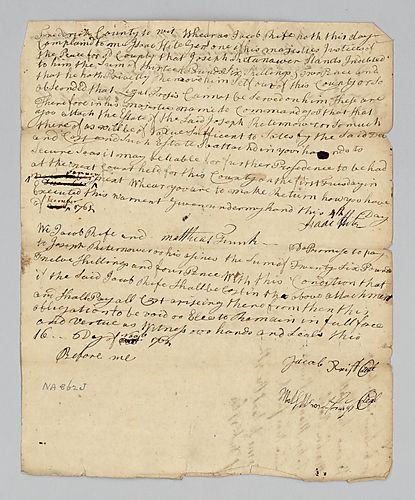 Frederick County to wit Whereas Jacob Rife hath this day
Complaind to me Isaac Hite Gent one of his majesties Justices of
the Peace for sd County that Joseph
to him the Sum of thirteen Pounds Shillings four Pence and
that he hath Privatly Removd him Self out of this County or So
absconds that Legal Process Cannot be Served on him These are
Therefore in his Majesties name to Command you that that
you attach the Estate of the Said Joseph or So much
thereof as will be of Value Sufficent to Satesfy the Said Debt
and Cost and Such Estate So attachd in you hands to
Secure So as it may be liable for further Proceedence to be had
at the next Court held for this County on the first Tuesday in
next Whear you are to make Return how you have
Executed this warrent Given under my hand this 4th Day
of 1761 Isaac Hite
We Jacob Rife and mathias Funk Do Promise to pay
to Joseph or his asignes the Sum of Twenty Six Pounds
Twelve Shillings and four Pence With this Condition that
if the Said Jacob Rife Shall be Cast in the above attachment
and Shall Pay all Cost arising there from then this
obligation to be void or Else to Remain in full face
and vertue as Witness our hands and Seals this
16 Day of 1761
Before me
Jacob
NA 862J